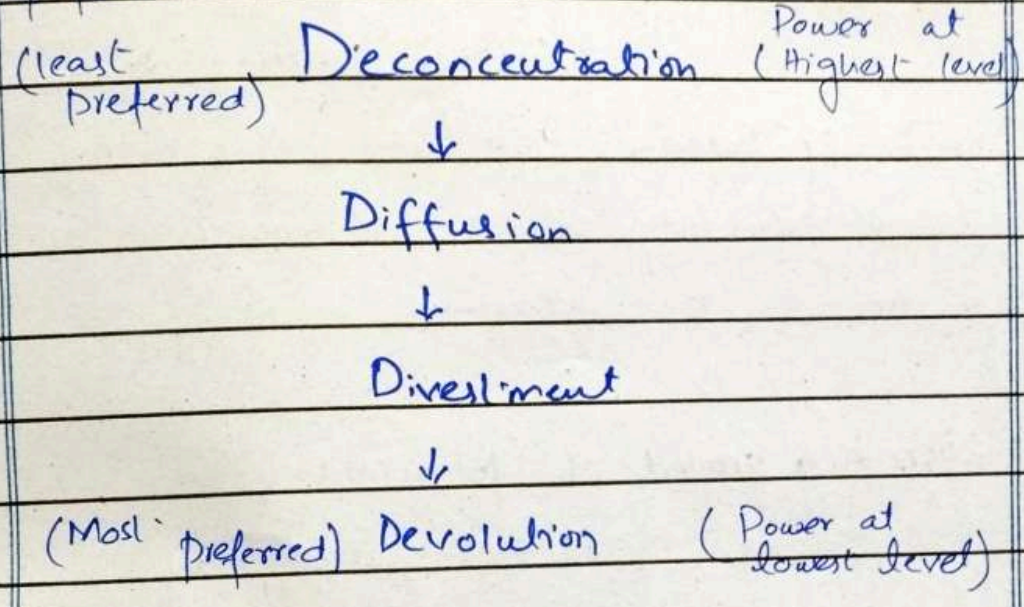 (least Deconcentration Power at
preferred) (Highest level)
↓
Diffusion
↓
Divestment
↓
(Most preferred) Devolution (Power at
lowest level)